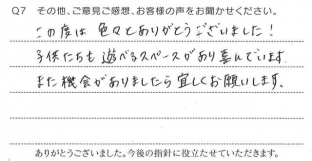 Q7 その他、ご意見ご感想、お客様の声をお聞かせください。
この度は 色々とありがとうございました！
子供たちも 遊べるスペースがあり喜んでいます
また機会がありましたら宜しくお願いします。
ありがとうございました。今後の指針に役立たせていただきます。